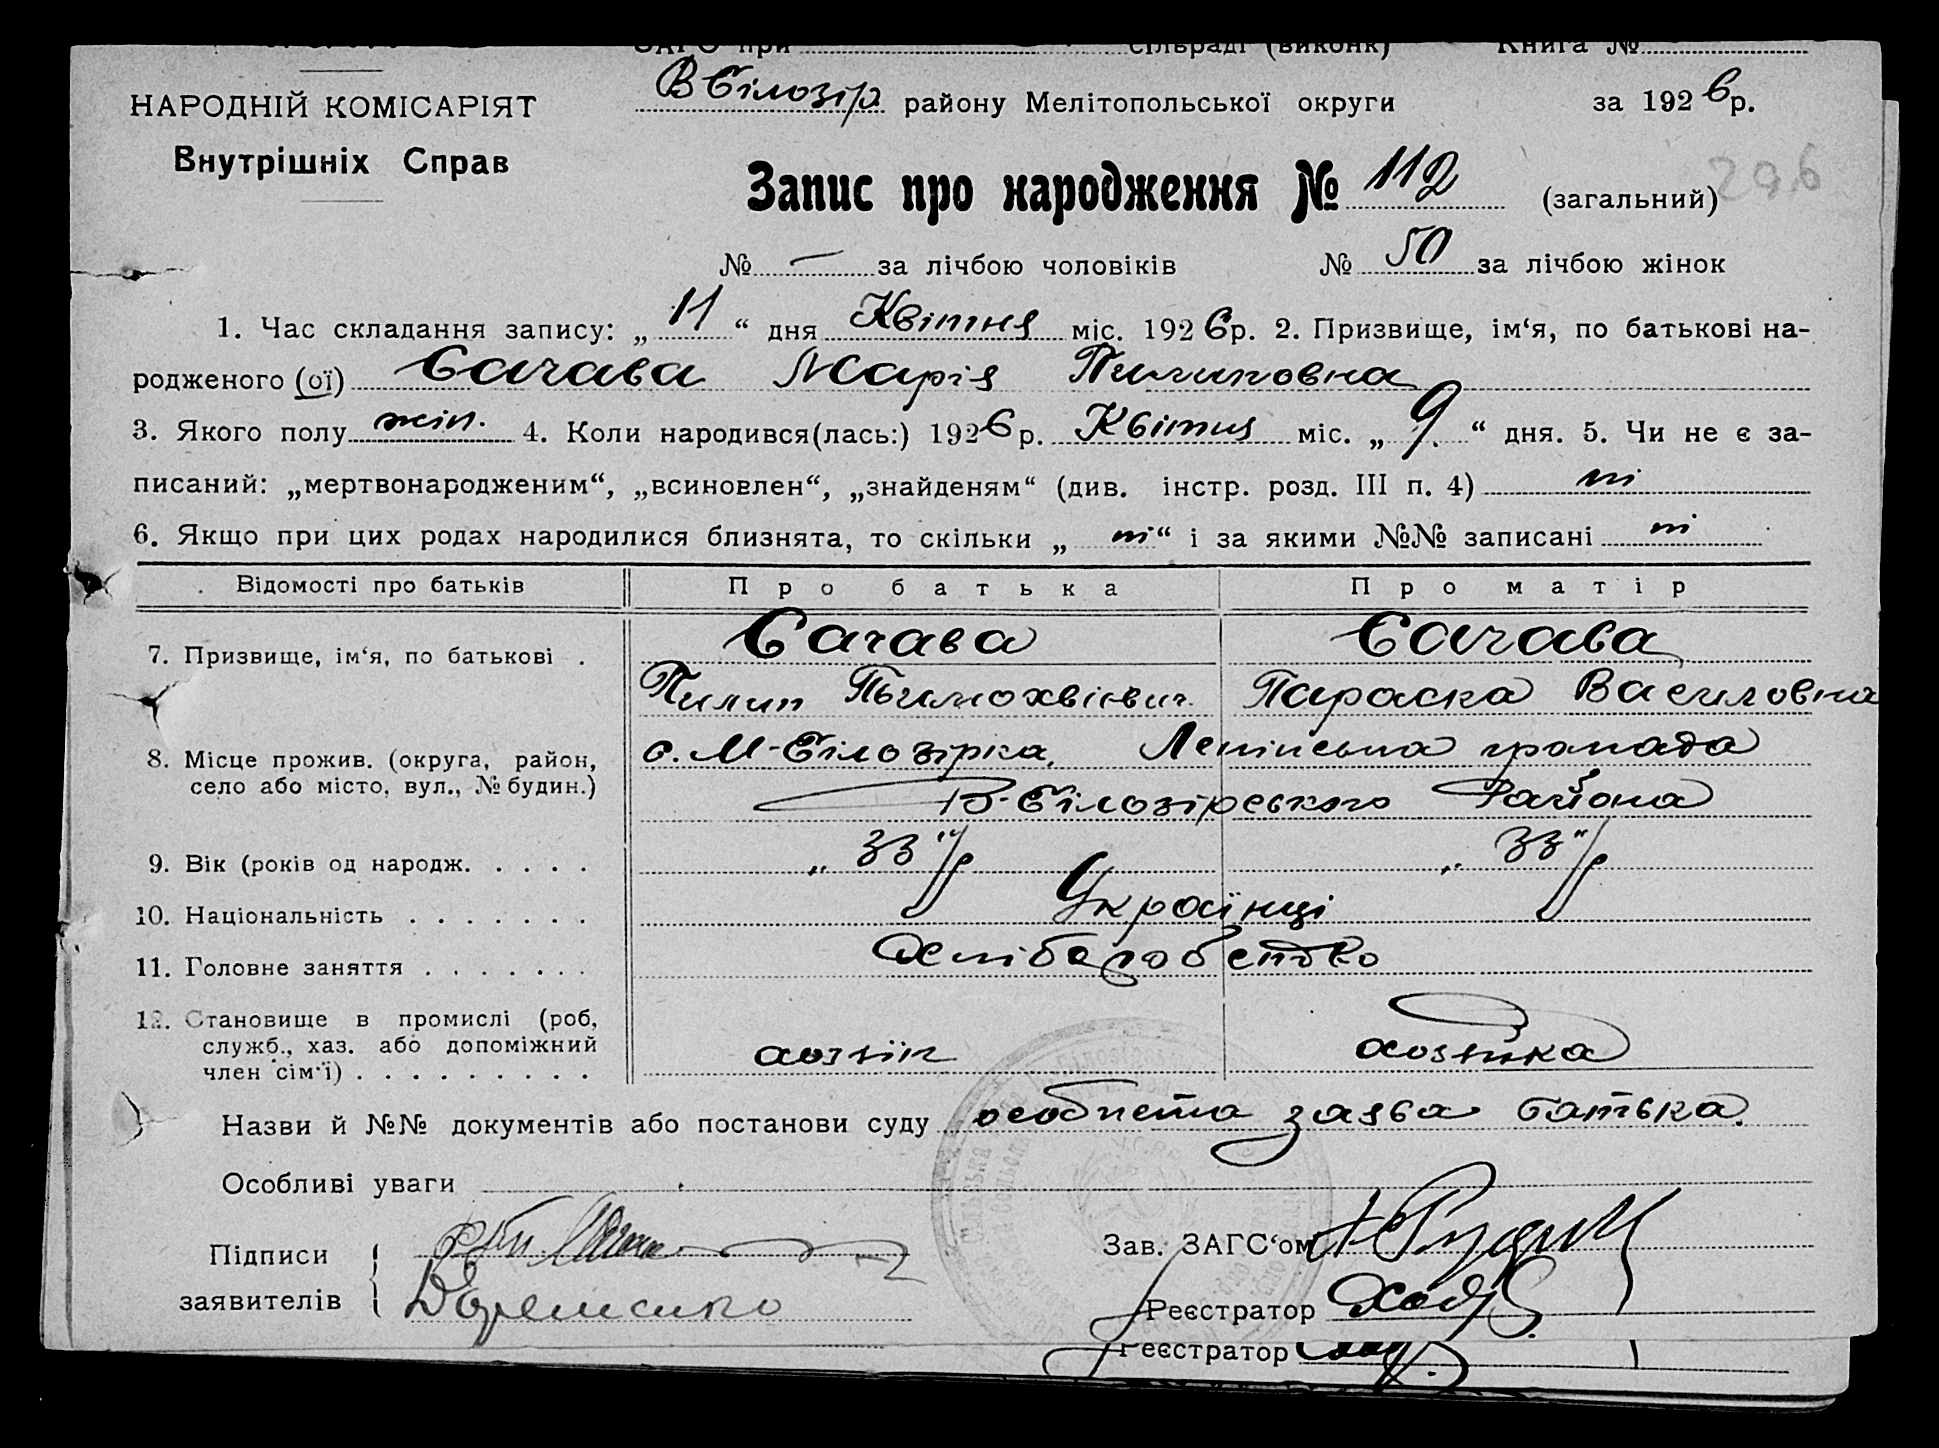 ЗАГС при сільраді (виконк) Книга №
НАРОДНІЙ КОМІСАРІЯТ
Внутрішніх Справ
В Білозір району Мелітопольської округи за 1926 р.
Запис про народження № 112 (загальний) 296
№ — за лічбою чоловіків № 50 за лічбою жінок
1. Час складання запису: „11“ дня Квітня міс. 1926 р. 2. Призвище, ім‘я, по батькові на-
родженого (ої) Сачава Марія Пилиповна
3. Якого полу жін. 4. Коли народився(лась:) 1926 р. Квітня міс. „9.“ дня. 5. Чи не є за-
писаний: „мертвонародженим“, „всиновлен“, „знайденям“ (див. інстр. розд. III п. 4) ні
6. Якщо при цих родах народилися близнята, то скільки „ні“ і за якими №№ записані ні
Відомості про батьків Про батька Про матір
7. Призвище, ім‘я, по батькові . Сачава Сачава
Пилип Тимохвієвич Параска Василовна
8. Місце прожив. (округа, район, с. М-Білозірка, Ленінська громада
село або місто, вул., № будин.) В-Білозірського Района
9. Вік (років од народж. . . . . „33“ р „33“ р
10. Національність . . . . . . . Українці
11. Головне заняття . . . . . . . Хліборобство
12. Становище в промислі (роб,
служб., хаз. або допоміжний хозяїн хозяйка
член сім‘ї) . . . . . . . . .
Назви й №№ документів або постанови суду особиста заява батька.
Особливі уваги
Підписи Зав. ЗАГС‘ом
заявителів Реєстратор
Реєстратор